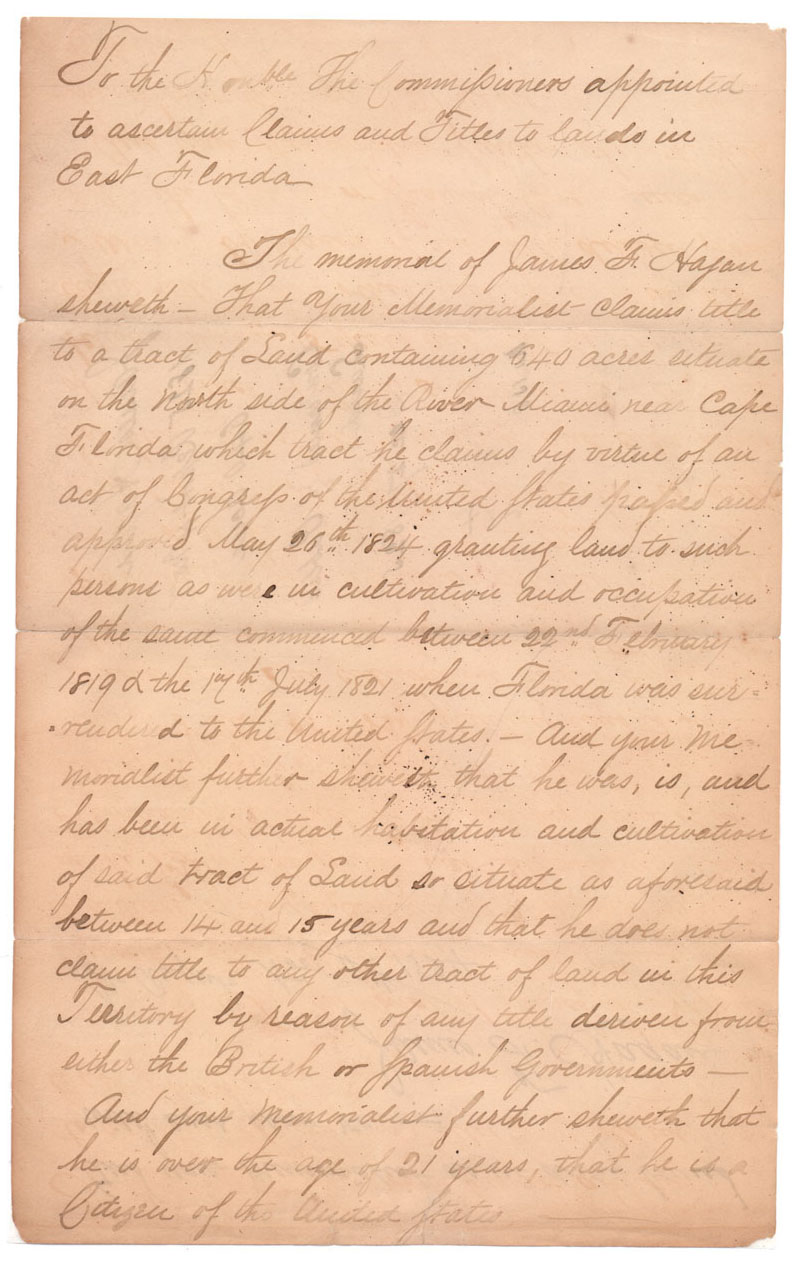 To the Honble The Commissioners appointed
to ascertain Claims and Titles to lands in
East Florida
The memorial of James F. Hagan
sheweth – That Your Memorialist claims title
to a tract of Land containing 640 acres situate
on the North side of the River Miami near Cape
Florida which tract he claims by virtue of an
act of Congress of the United States passed and
approved May 26th 1824 granting land to such
persons as were in cultivation and occupation
of the same commenced between 22nd February
1819 & the 17th July 1821 when Florida was sur=
=rendered to the United States. – And your Me-
morialist further sheweth that he was, is, and
has been in actual habitation and cultivation
of said tract of Land so situate as aforesaid
between 14 and 15 years and that he does not
claim title to any other tract of land in this
Territory by reason of any title deriven from
either the British or Spanish Governments —
And your Memorialist further sheweth that
he is over the age of 21 years, that he is a
Citizen of the United States